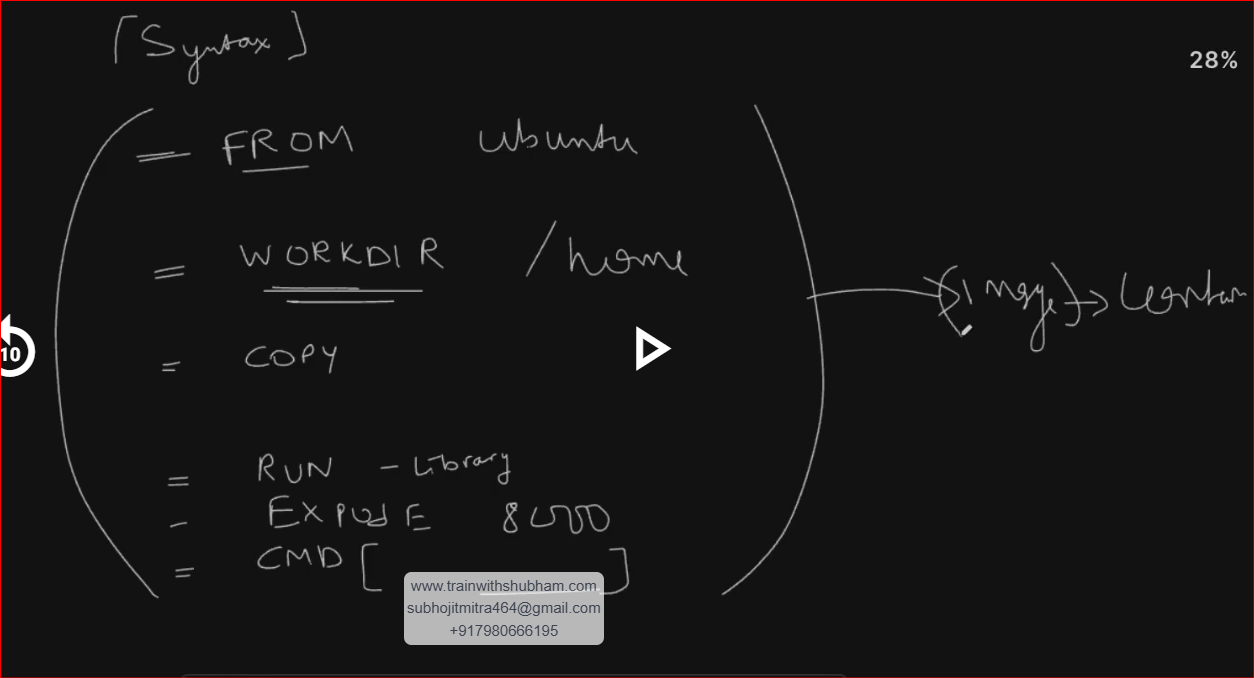 [Syntax]
28%
= FROM ubuntu
= WORKDIR /home
(Image) →
= COPY
10
= RUN - Library
- EXPOSE 8000
= CMD [ ]
www.trainwithshubham.com
subhojitmitra464@gmail.com
+917980666195